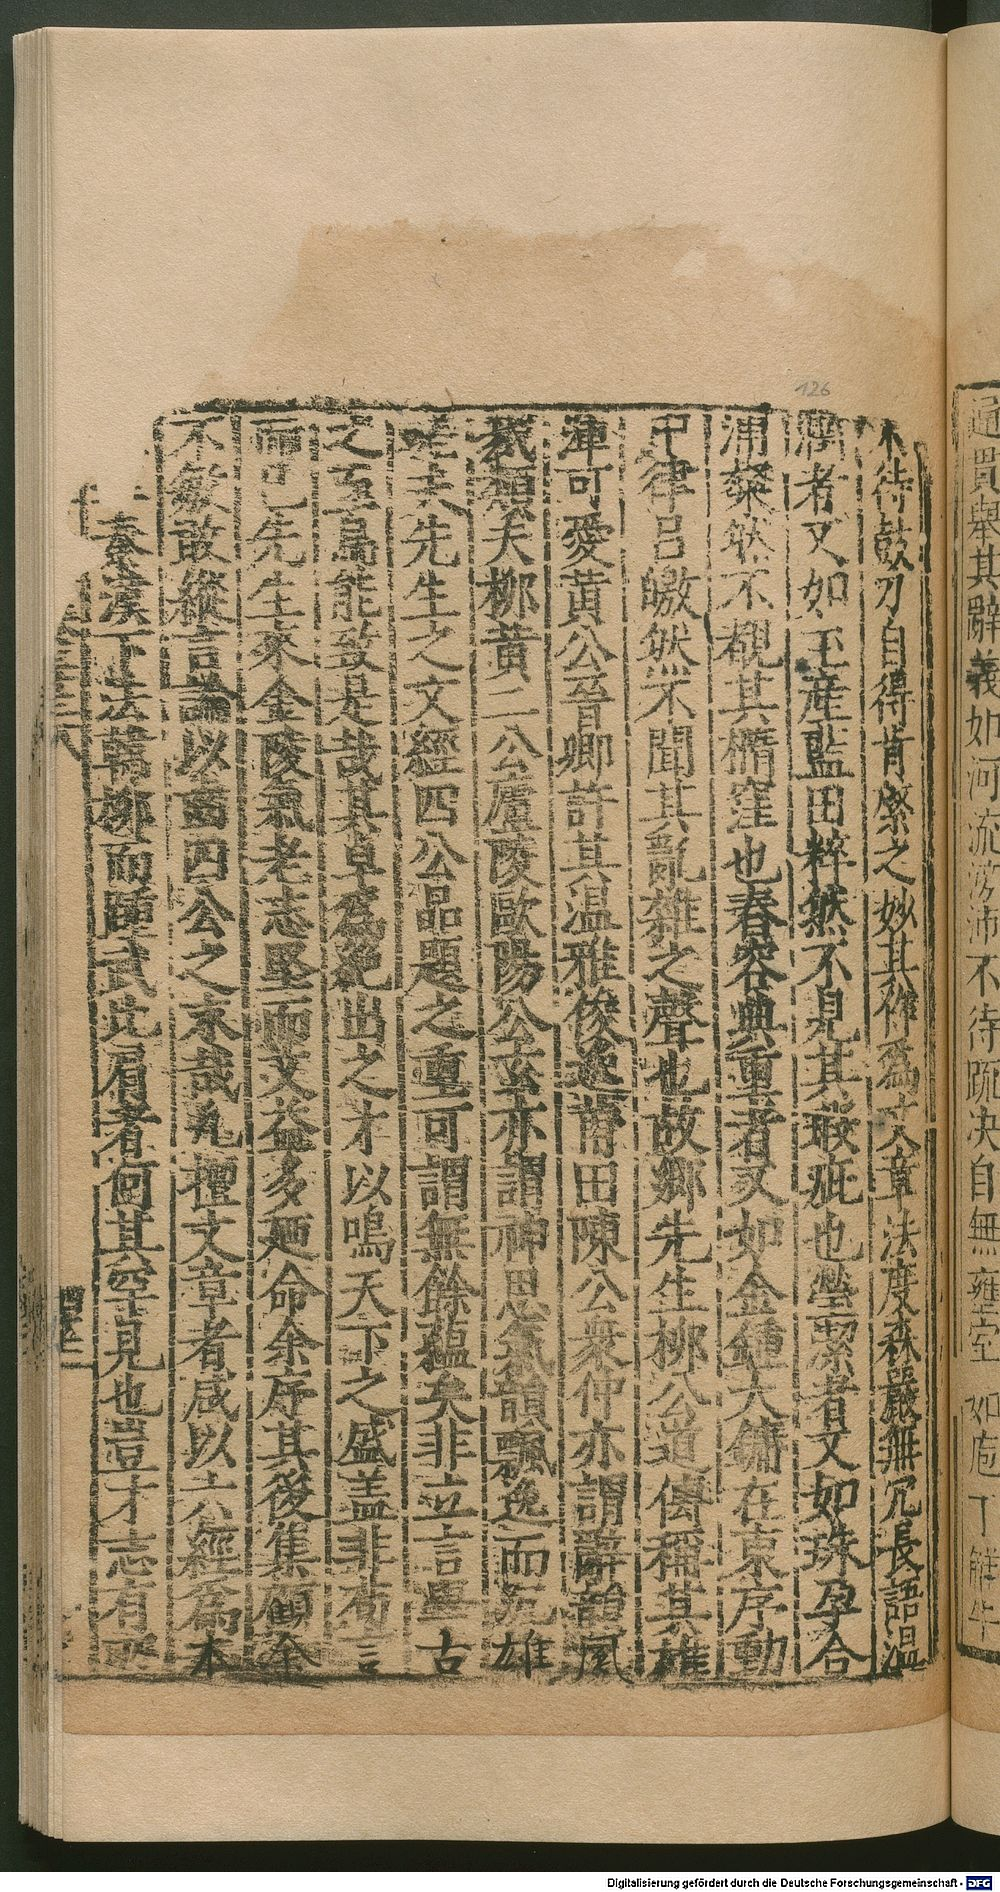 通貫舉其辭義如河流滂沛不待疏决自無壅
如庖丁解牛
不待鼓刀自得肯綮之妙其作為文章法度森嚴無冗長語溫
潤者又如玉產藍田粹然不見其瑕疵也瑩潔者又如珠孕合
浦粲然不覩其橢窪也舂容典重者又如金鍾大鏞在東序動
中律呂皦然不聞其亂雜之聲也故鄉先生柳公道傳稱其雄
渾可愛黃公晉卿許其温雅俊逸莆田陳公衆仲亦謂辭韻風
裁類夫柳黃二公廬陵歐陽公玄亦謂神思氣韻飄逸而沉雄
嗟夫先生之文經四公品題之重可謂無餘藴矣非立言畢古
之至烏能致是哉其卓為絶出之才以鳴天下之盛盖非茍言
而已先生來金陵氣老志堅而文益多廼命余序其後集顧余
不敏敢縱言論以嗇四公之末哉凡擅文章者咸以六經為本
秦漢下法韓柳而踵武比肩者何其罕見也豈才志有
126
Digitalisierung gefördert durch die Deutsche Forschungsgemeinschaft - DFG